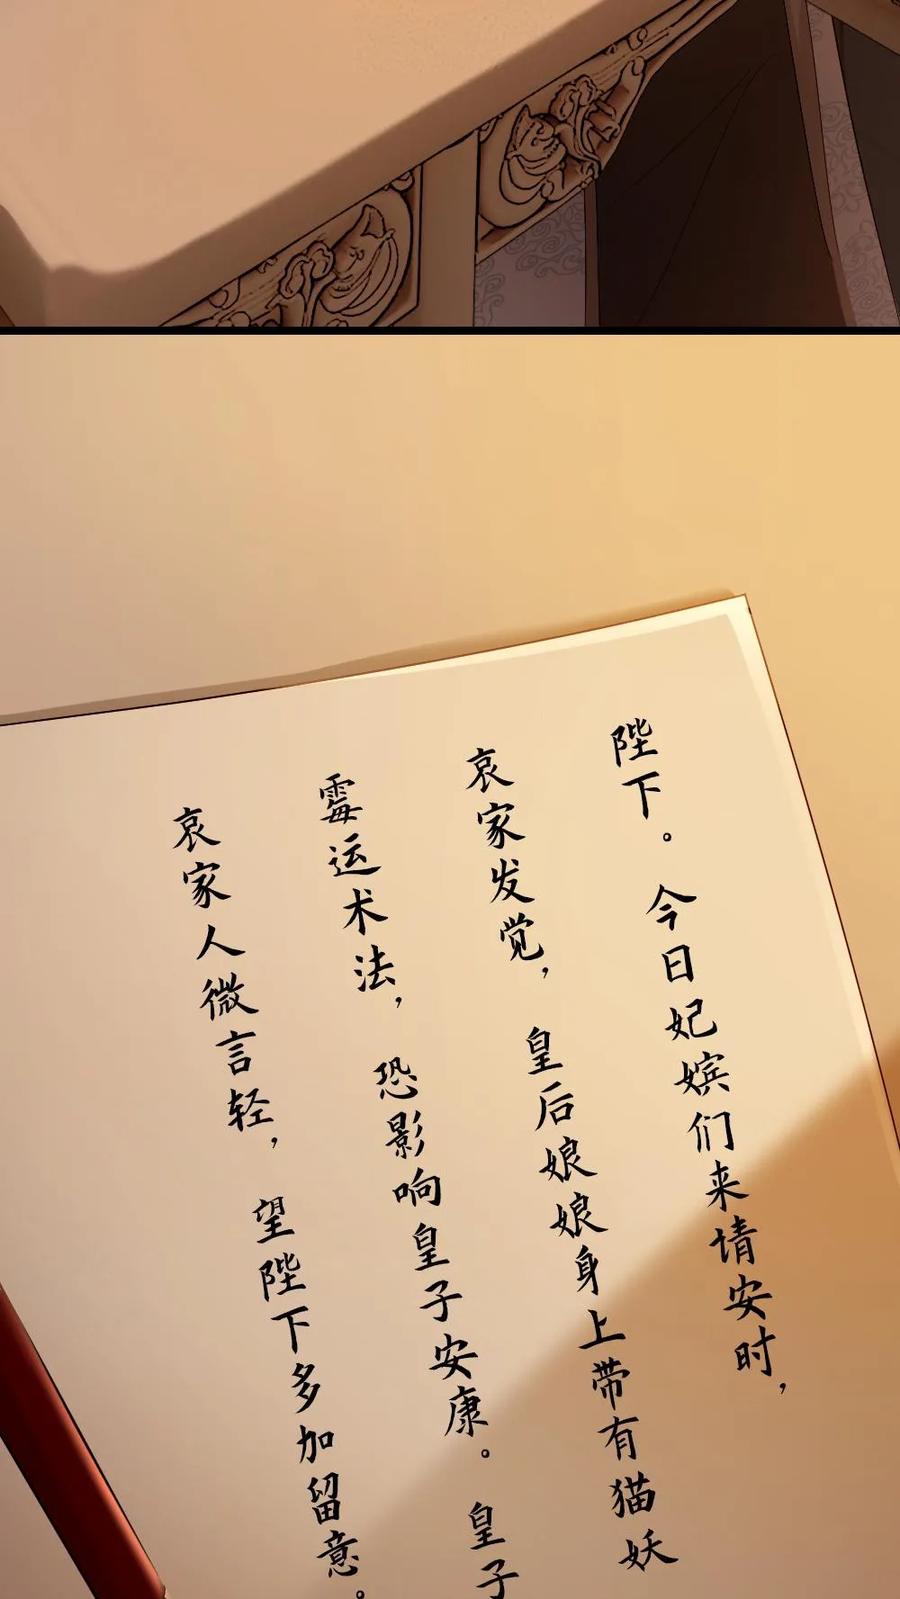 陛下。今日妃嫔们来请安时，
哀家发觉，皇后娘娘身上带有猫妖
霉运术法，恐影响皇子安康。皇子
哀家人微言轻，望陛下多加留意。